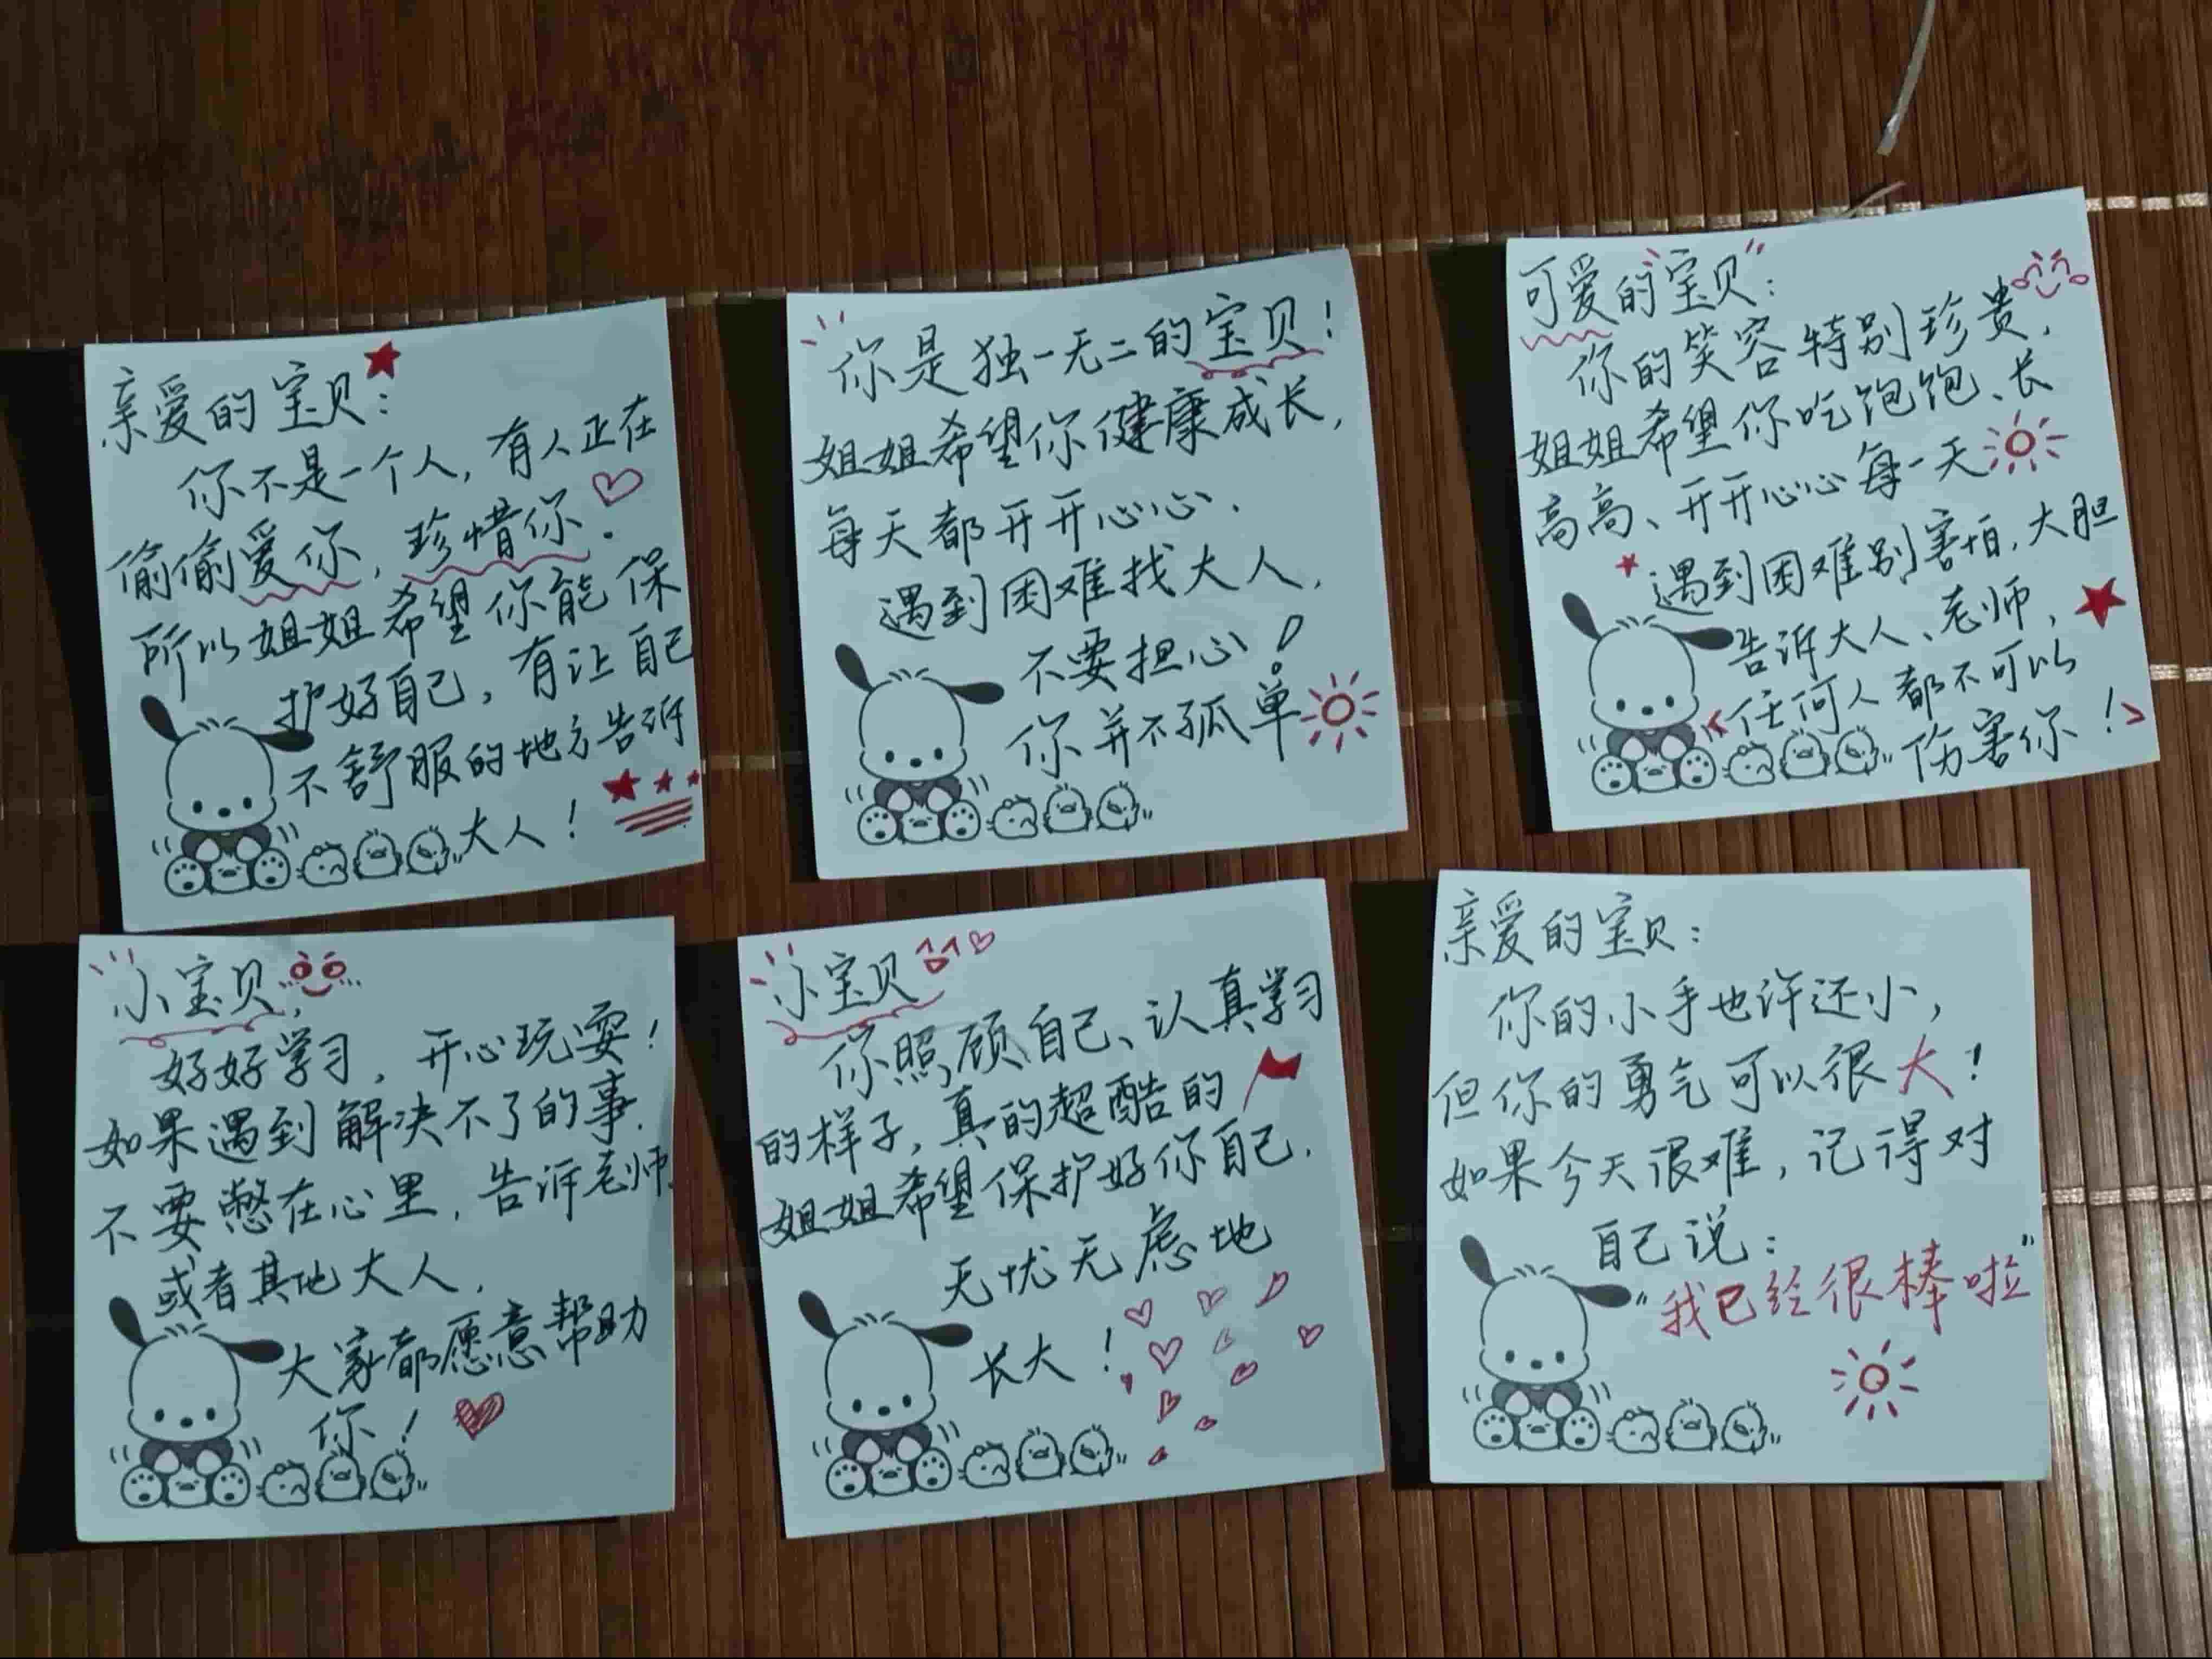 亲爱的宝贝：
你不是一个人，有人正在
偷偷爱你，珍惜你。
所以姐姐希望你能保
护好自己，有让自己
不舒服的地方告诉
大人！
你是独一无二的宝贝！
姐姐希望你健康成长，
每天都开开心心.
遇到困难找大人，
不要担心！
你并不孤单
可爱的"宝贝"：
你的笑容特别珍贵，
姐姐希望你吃饱饱、长
高高、开开心心每一天
遇到困难别害怕，大胆
告诉大人、老师，
任何人都不可以
伤害你！
小宝贝，
好好学习，开心玩耍！
如果遇到解决不了的事，
不要憋在心里，告诉老师
或者其他大人，
大家都愿意帮助
你！
小宝贝
你照顾自己、认真学习
的样子，真的超酷的
姐姐希望保护好你自己，
无忧无虑地
长大！
亲爱的宝贝：
你的小手也许还小，
但你的勇气可以很大！
如果今天很难，记得对
自己说：
"我已经很棒啦"